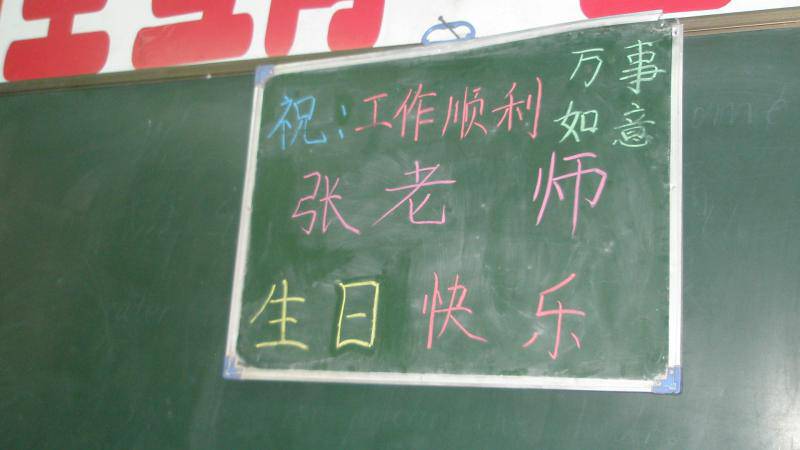 祝：工作顺利 万事如意
张老师
生日快乐